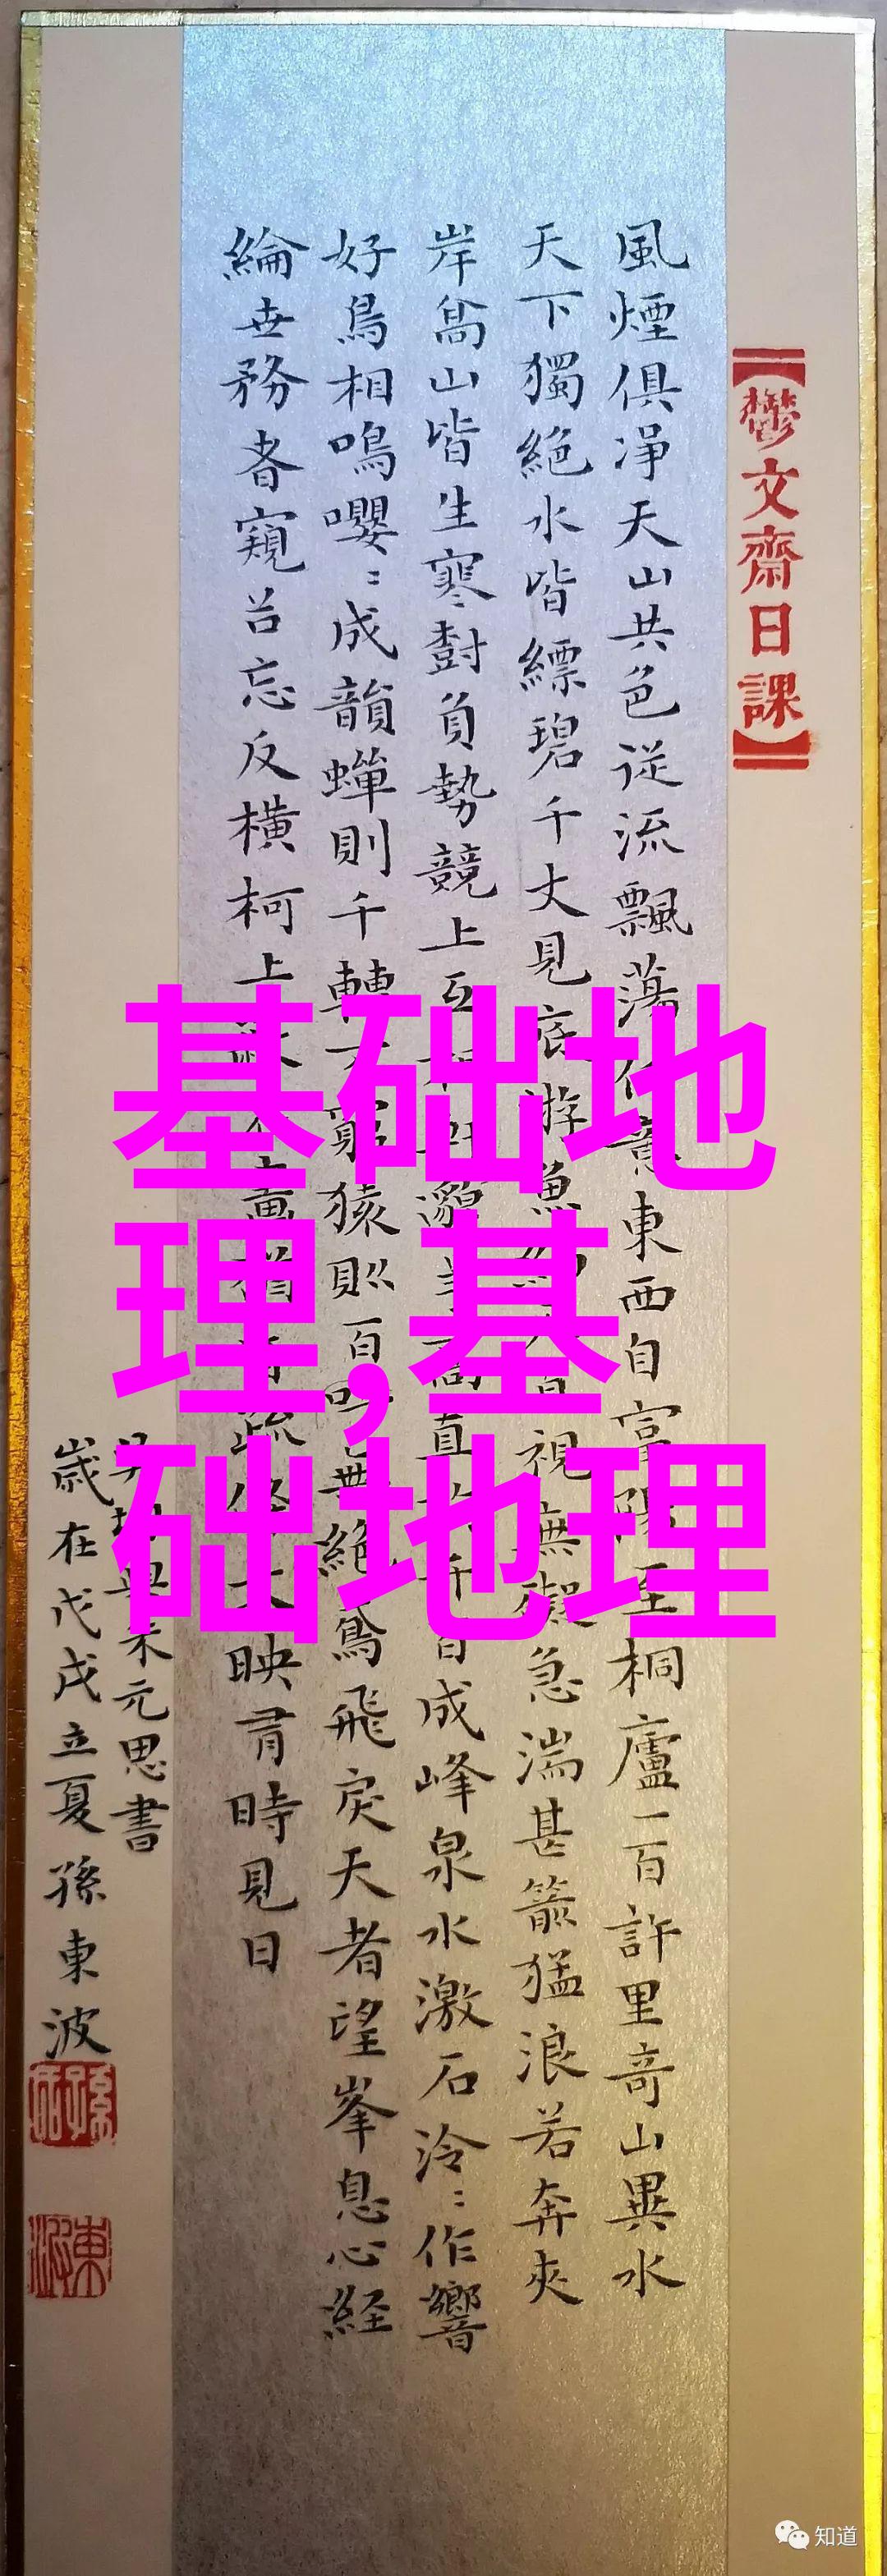 【鬱文齋日課】
風煙俱淨天山共色從流飄蕩任意東西自富陽至桐廬一百許里奇山異水
天下獨絕水皆縹碧千丈見底游魚視無礙急湍甚箭猛浪若奔夾
岸高山皆生寒樹負勢競上互相軒邈爭高直指千百成峰泉水激石泠〻作響
好鳥相鳴嚶〻成韻蟬則千轉不窮猿則百叫無絕鳶飛戾天者望峯息心経
綸世務者窺谷忘反橫柯上蔽在晝猶昏疏條交映有時見日
吳均與朱元思書
歲在戊戌立夏孫東波
基础地
理,基
础地理
知道